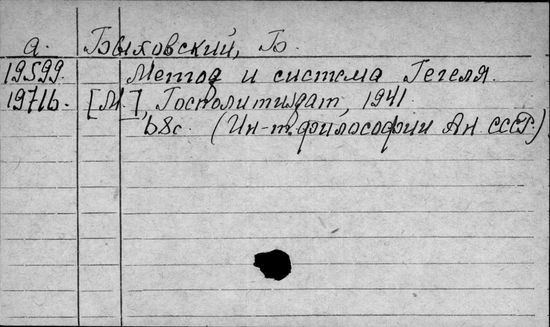 а. Быховский, Б.
19599. Метод и система Гегеля.
19716. [М.], Госполитиздат, 1941.
68с. (Ин-т философии Ан СССР.)